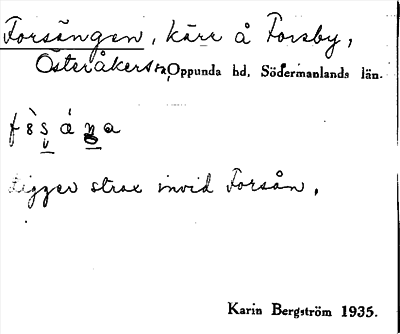 Forsängen, kärr å Forsby,
Österåkers sn, Oppunda hd, Södermanlands län.
ligger strax invid Forsån.
Karin Bergström 1935.